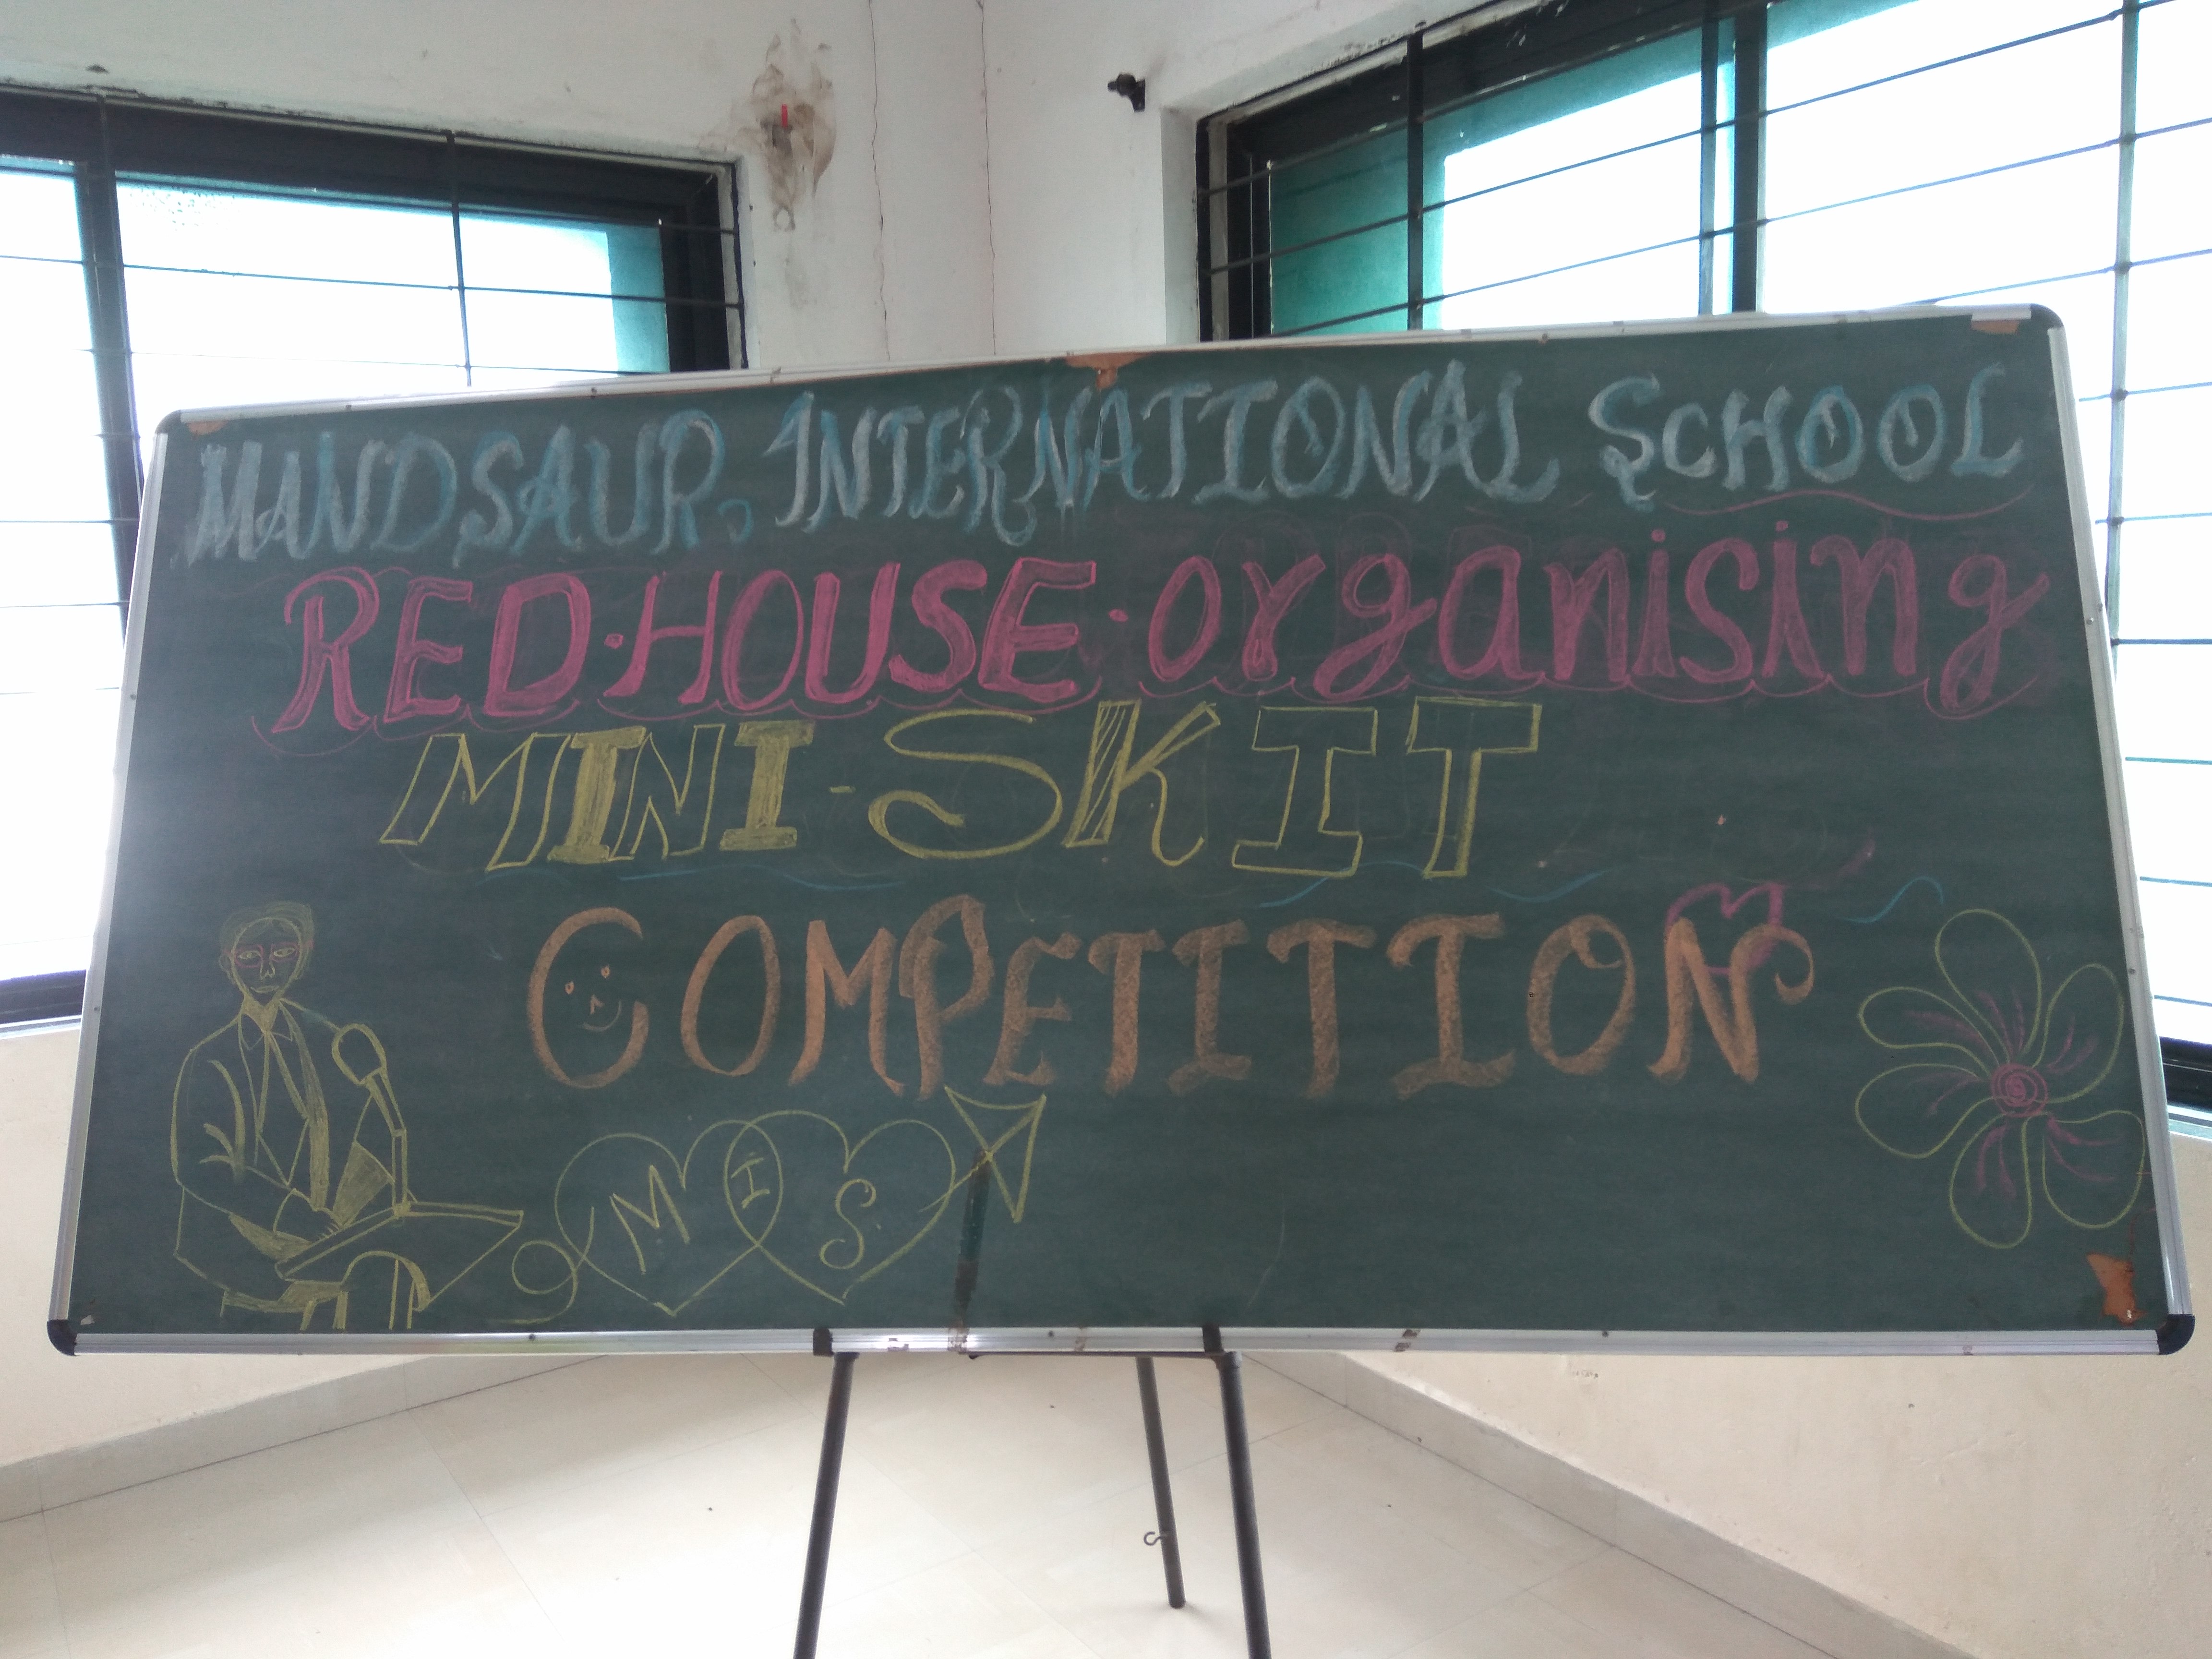 MANDSAUR. INTERNATIONAL SCHOOL
RED.HOUSE.organising
MINI-SKIT
COMPETITION
M I S